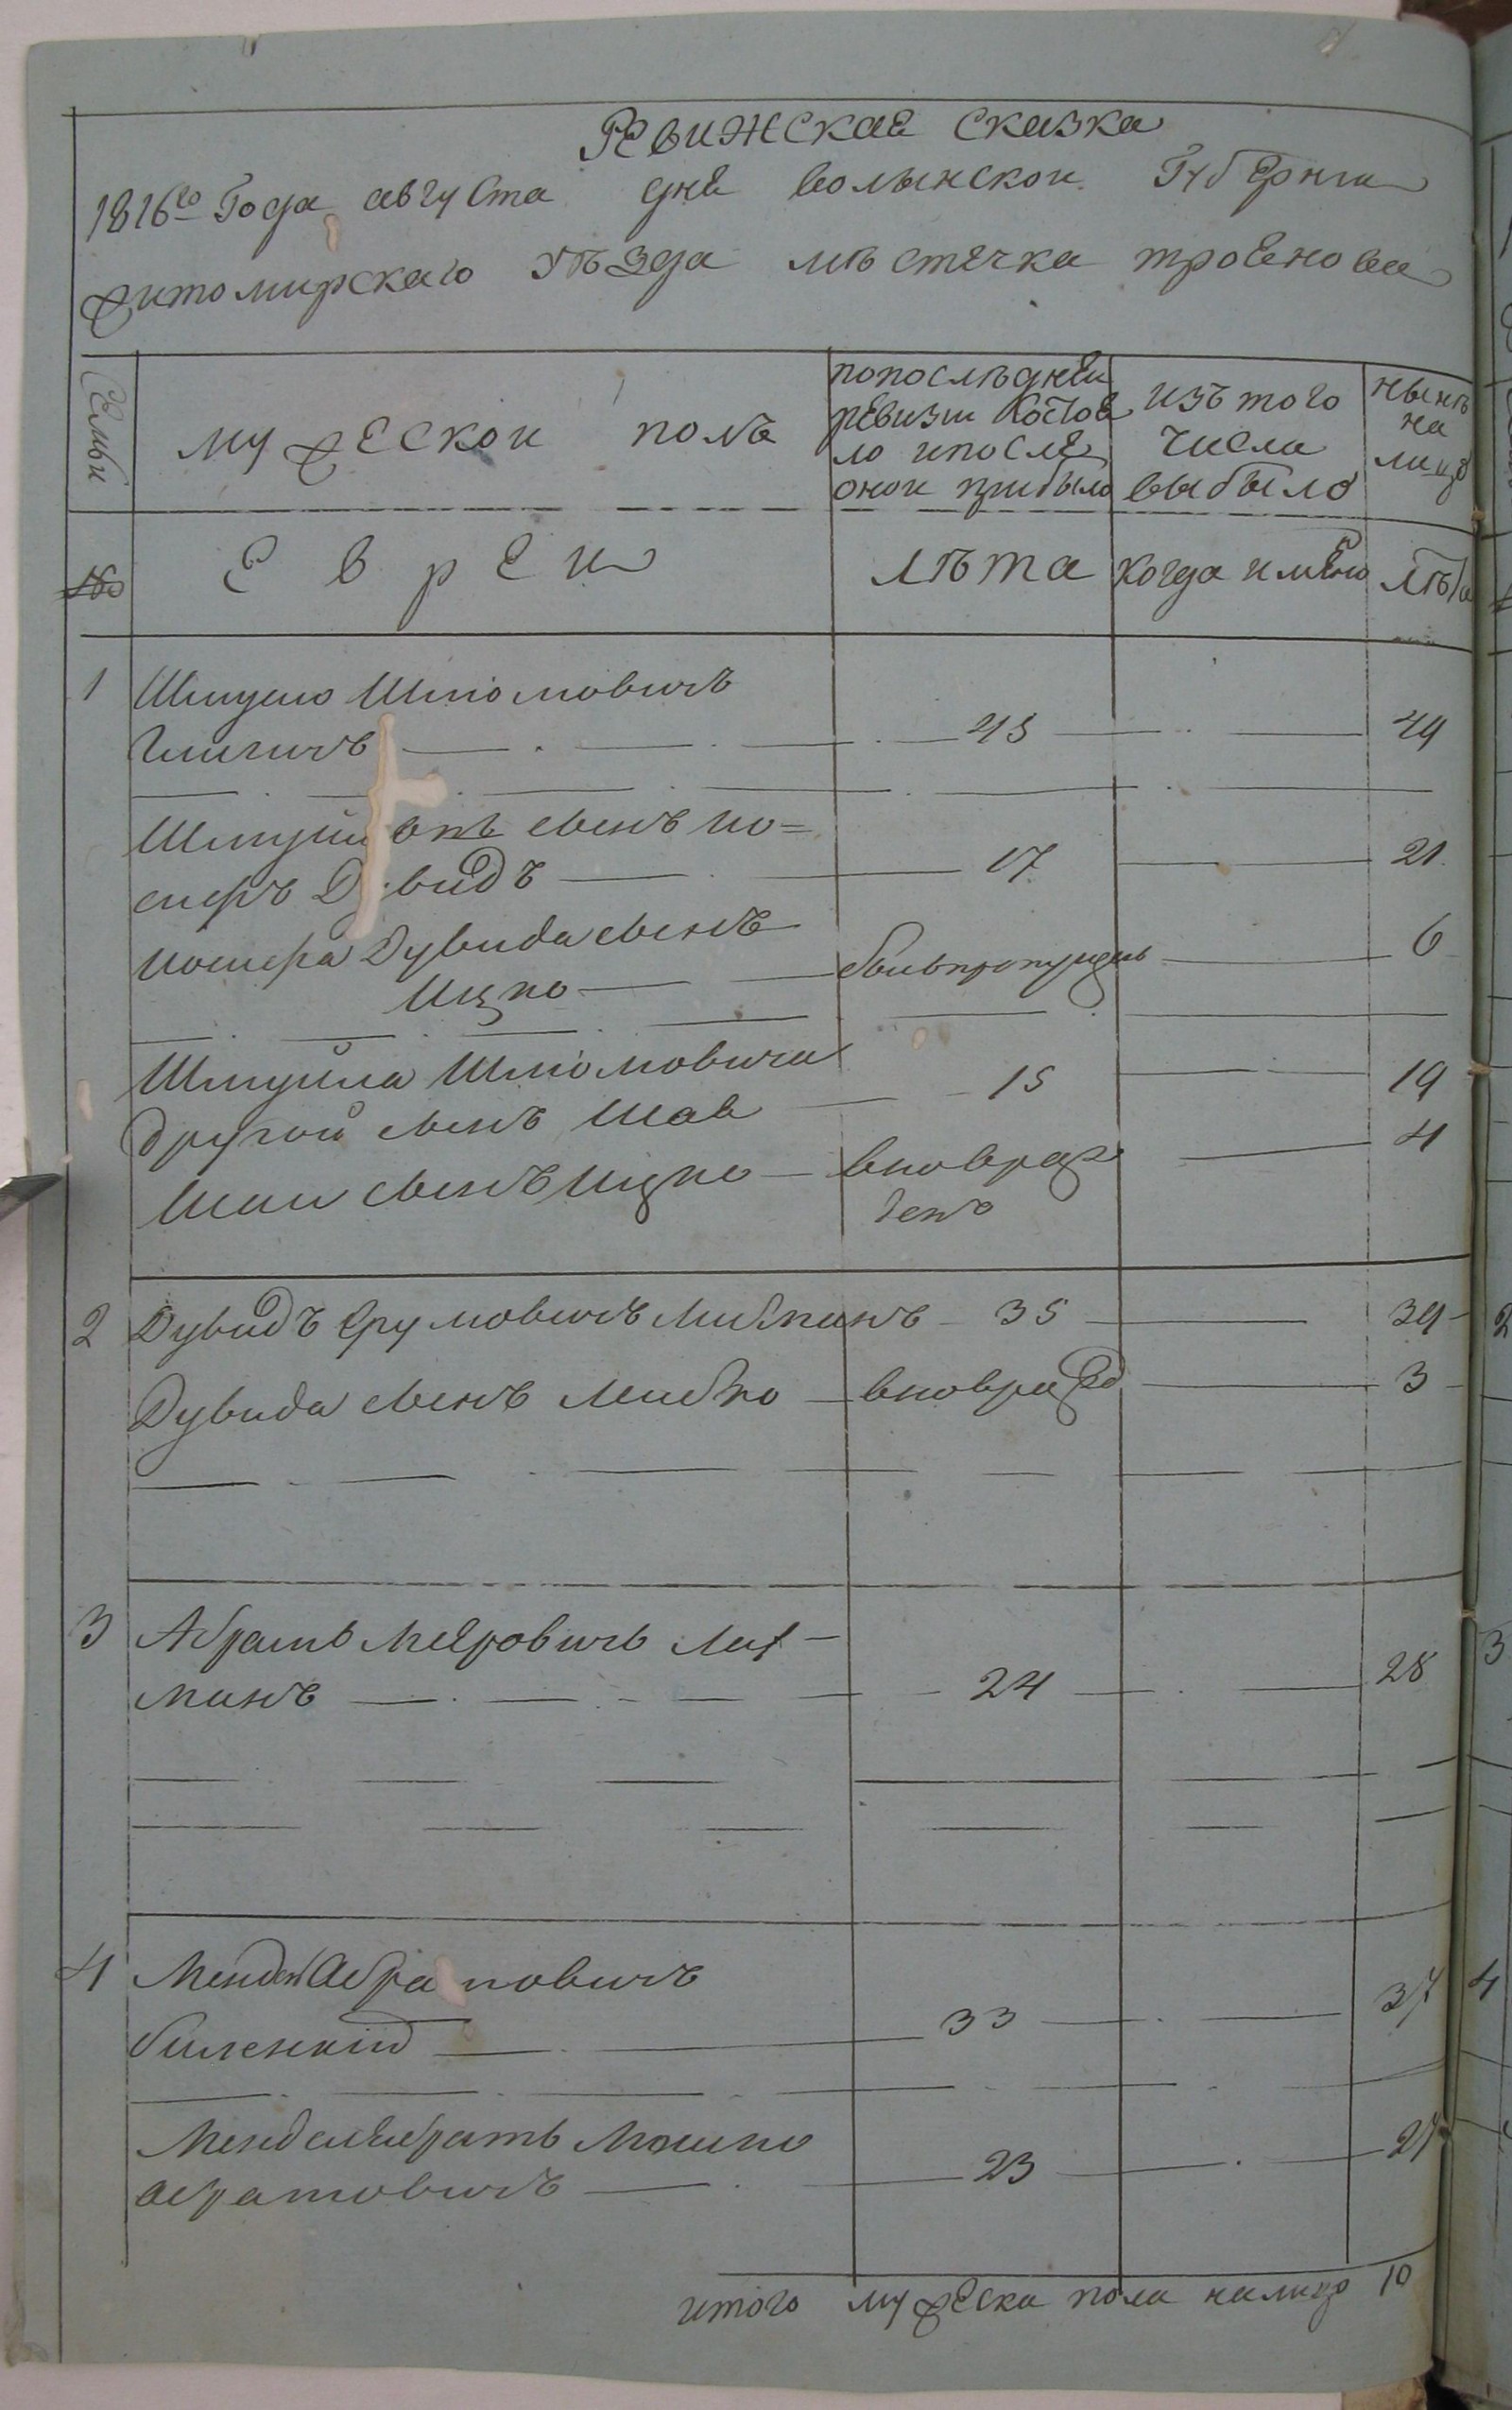 Ревижская сказка
1816го Года августа дня волынской Губернии
житомирскаго уѣзда мѣстечка троянова
Семьи
мужеской полъ
по последней
ревизии состоя
ло и после
оной прибыло
изъ того
числа
выбыло
нынѣ
на
лицо
№
Евреи
лѣта
когда имянно
лѣта
1 Шмуйло Шліомовичъ
45 49
Шмуйловъ сынъ Ио=
сифъ Дувидъ 17 21
Иосифа Дувида сынъ
Ицко былъ пропущенъ 6
Шмуйла Шліомовича
другой сынъ Шая 15 19
Шаи сынъ Ицко вновь рож 4
денъ
2 Дувидъ Сруловичъ Либманъ 35 39
Дувида сынъ Лейбко вновь рожд 3
3 Абрамъ Меяровичъ
манъ 24 28
4 Мендель Абрамовичъ
биленкій 33 37
Менделя братъ Мошко
абрамовичъ 23 27
итого мужеска пола налицо 10